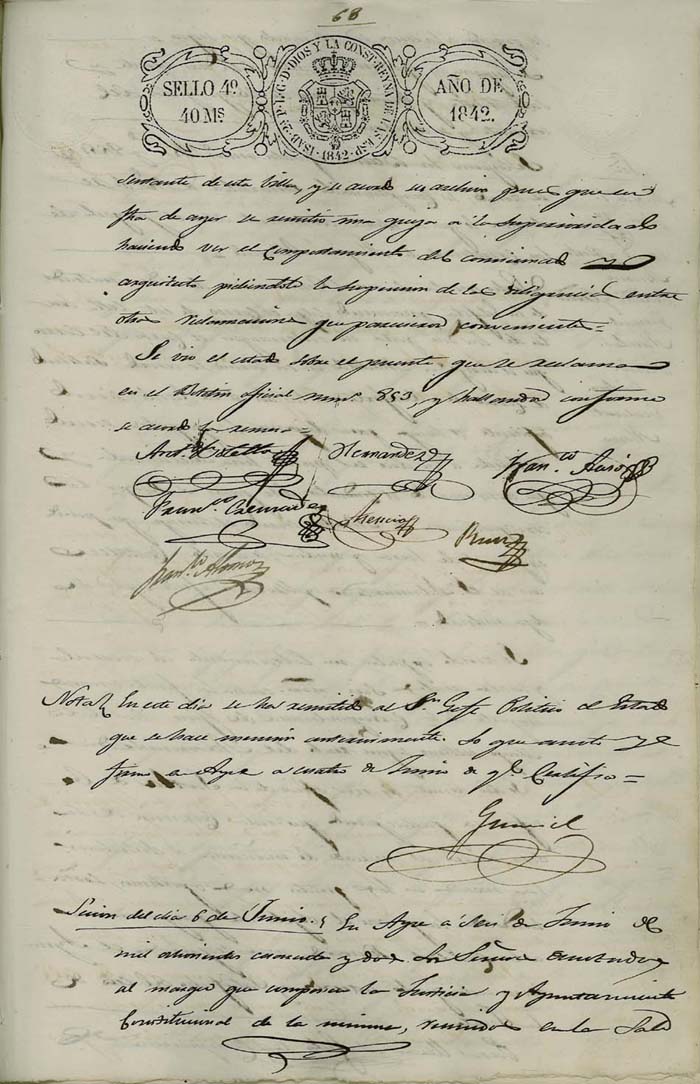 68
SELLO 4º
40 Ms
ISAB. 2ª P. L. G. D. DIOS Y LA CONST. REYNA DE LAS ESP.
1842
AÑO DE
1842.
de esta Villa, y se acordó su archivo pues que con
fha de ayer se remitió una queja a la Superioridad
haciendo ver el Comportamiento del comisionado y
arquitecto pidiendole la suspension de las diligencias entre
otras reclamaciones que parecieron convenientes=
Se vio el estado sobre el que se reclama
en el Boletin oficial num.º 853, y hallandose conforme
se acordó la remesa=
Ant.º
Hernandez
Fran.co
Fran.co
Ruiz
Fran.co Alonso
Nota) En este dia se ha remitido al Sr. Gefe Politico el Estado
que se hace mencion anteriormente. Lo que anoto y
firmo en Ayra a cuatro de Junio de q.e Certifico=
Sesion del dia 6 de Junio. En Ayra á Seis de Junio de
mil ochocientos cuarenta y dos. Los Señores anotados
al margen que componen la Justicia y Ayuntamiento
Constitucional de la misma, reunidos en la Sala